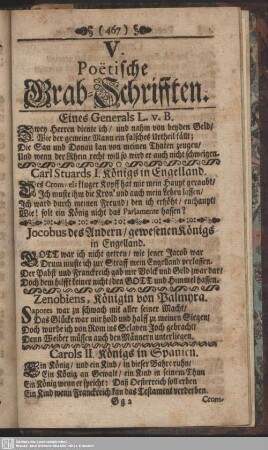 ( 467 )
V.
Poëtische
Grab-Schrifften.
Eines Generals L. v. B.
Zwey Herren diente ich / und nahm von beyden Geld/
Wie der gemeine Mann ein falsches Urtheil fällt;
Die Sau und Donau kan von meinen Thaten zeugen/
Und wenn der Rhein recht will so wird er auch nicht schweigen.
Carl Stuards I. Königs in Engelland.
Des Cromwels kluger Kopff hat mir mein Haupt geraubt/
Ich muste ihm die Kron' und auch mein Leben lassen/
Ich ward durch meinen Freund / den ich erhöht / enthaupt/
Wie! solt ein König nicht das Parlament hassen?
Jocobus des Andern/ gewesenen Königs
in Engelland.
GOTT war ich nicht getreu / wie jener Jacob war
Drum muste ich zur Straff mein Engelland verlassen.
Der Pabst und Franckreich gab mir Volck und Geld zwar dar/
Doch dem hilfft keiner nicht / den GOTT und Himmel hassen.
Zenobiens, Königin von Palmyra.
Sapores war zu schwach mit aller seiner Macht/
Das Glücke war mir hold und halff zu meinen Siegen/
Doch wurde ich von Rom ins Sclaven Joch gebracht/
Denn Weiber müssen auch den Männern unterliegen.
Carols II. Königs in Spanien.
Ein König / und ein Kind / in dieser Bahre ruhn/
Ein König an Gewalt / ein Kind in seinem Thun
Ein König wenn er spricht: Das Oesterreich soll erben
Ein Kind wenn Franckreich kan das Testament verderben.
Gg 2
Crom-